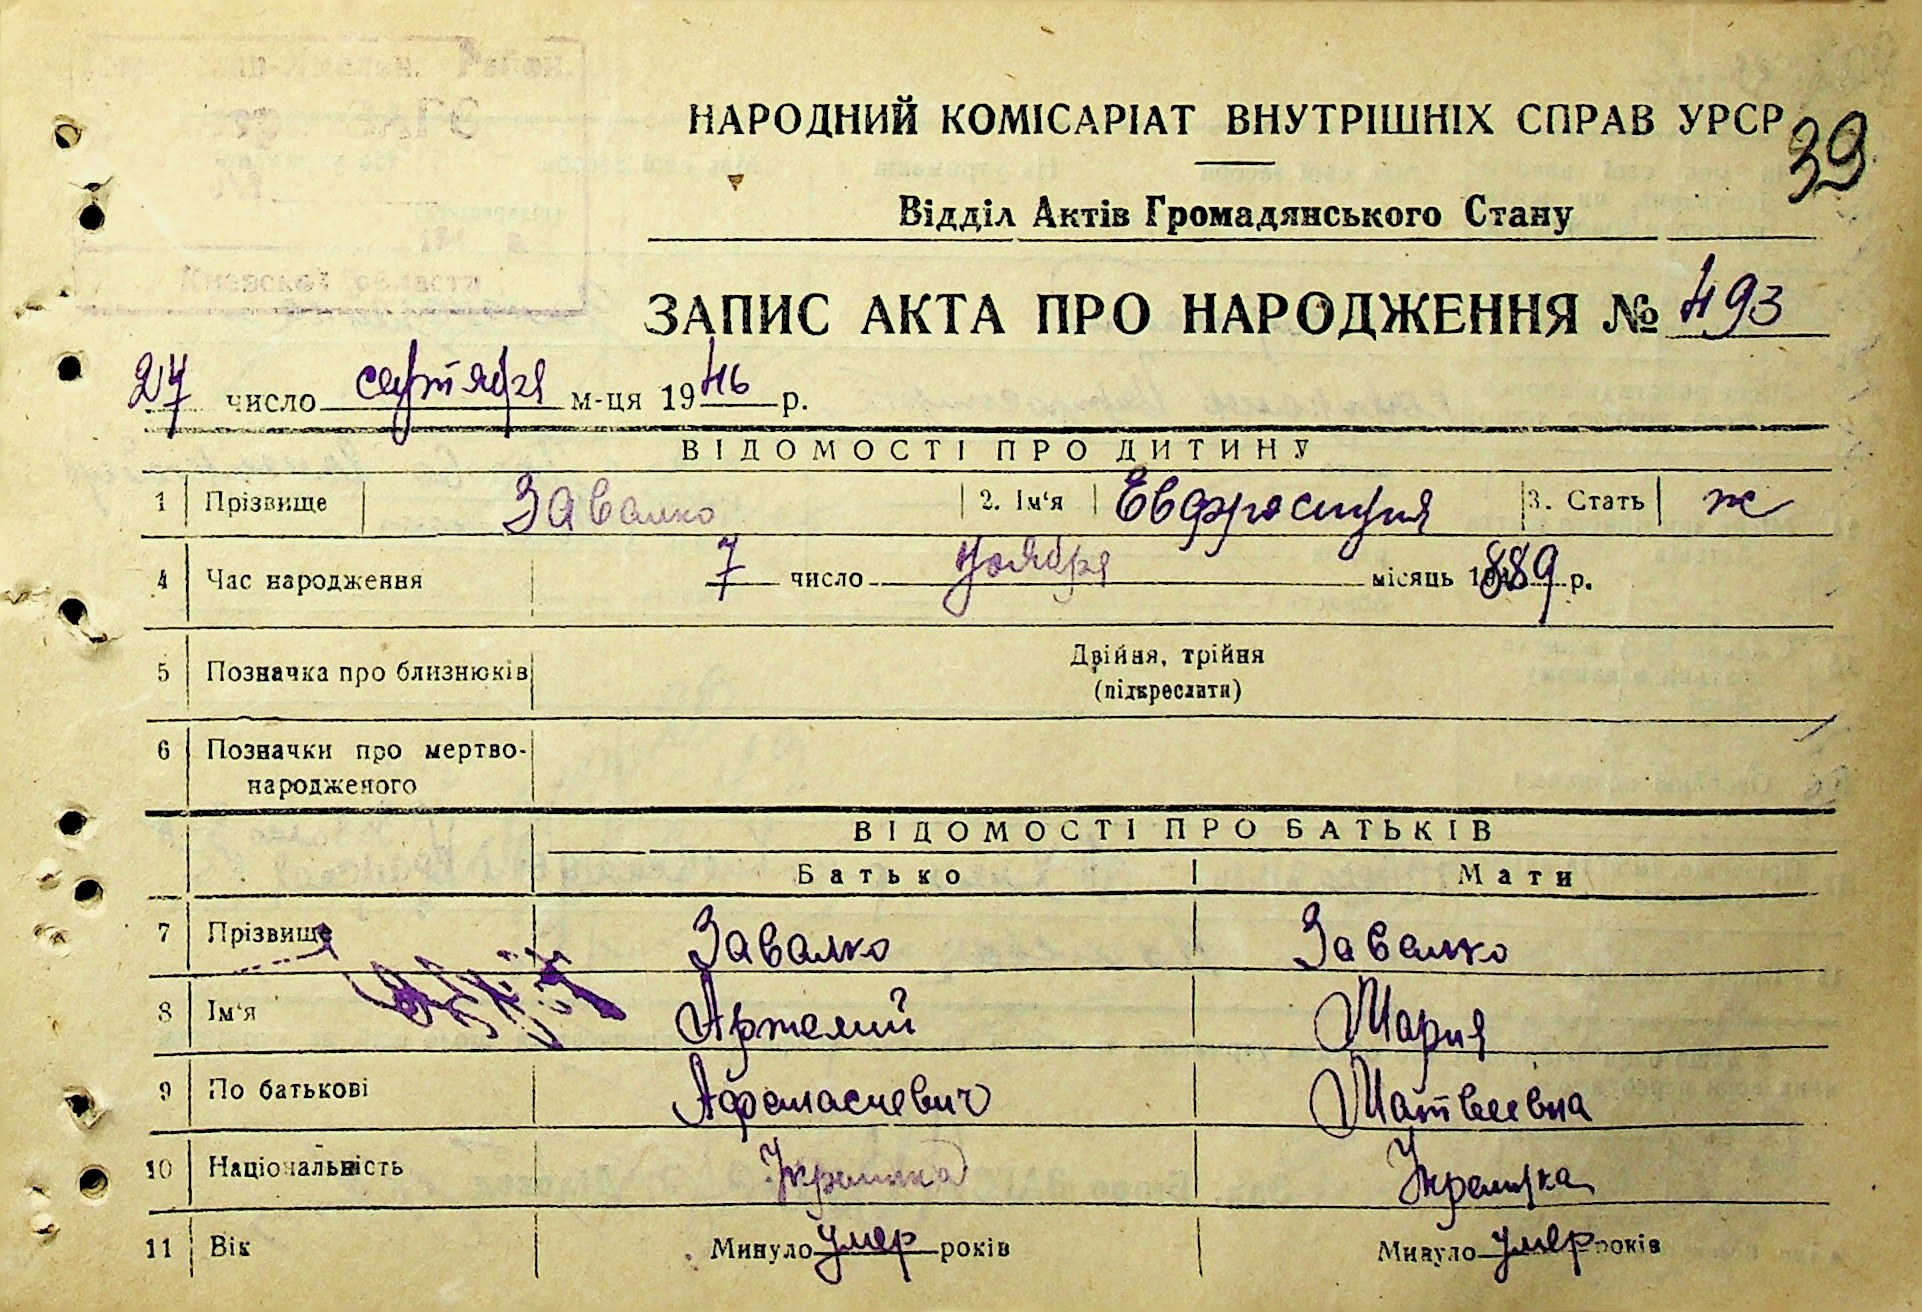 НАРОДНИЙ КОМІСАРІАТ ВНУТРІШНІХ СПРАВ УРСР
39
Відділ Актів Громадянського Стану
ЗАПИС АКТА ПРО НАРОДЖЕННЯ № 493
27 число сентября м-ця 1946 р.
ВІДОМОСТІ ПРО ДИТИНУ
1 Прізвище Завалко 2. Ім'я Евфросиния 3. Стать ж
4 Час народження 7 число ноября місяць 1889 р.
5 Позначка про близнюків Двійня, трійня
(підкреслити)
6 Позначки про мертво-
народженого
ВІДОМОСТІ ПРО БАТЬКІВ
Батько Мати
7 Прізвище Завалко Завалко
8 Ім'я Артемий Мария
9 По батькові Афанасиевич Матвеевна
10 Національність Украинка Украинка
11 Вік Минуло умер років Минуло умер років
Киевской области